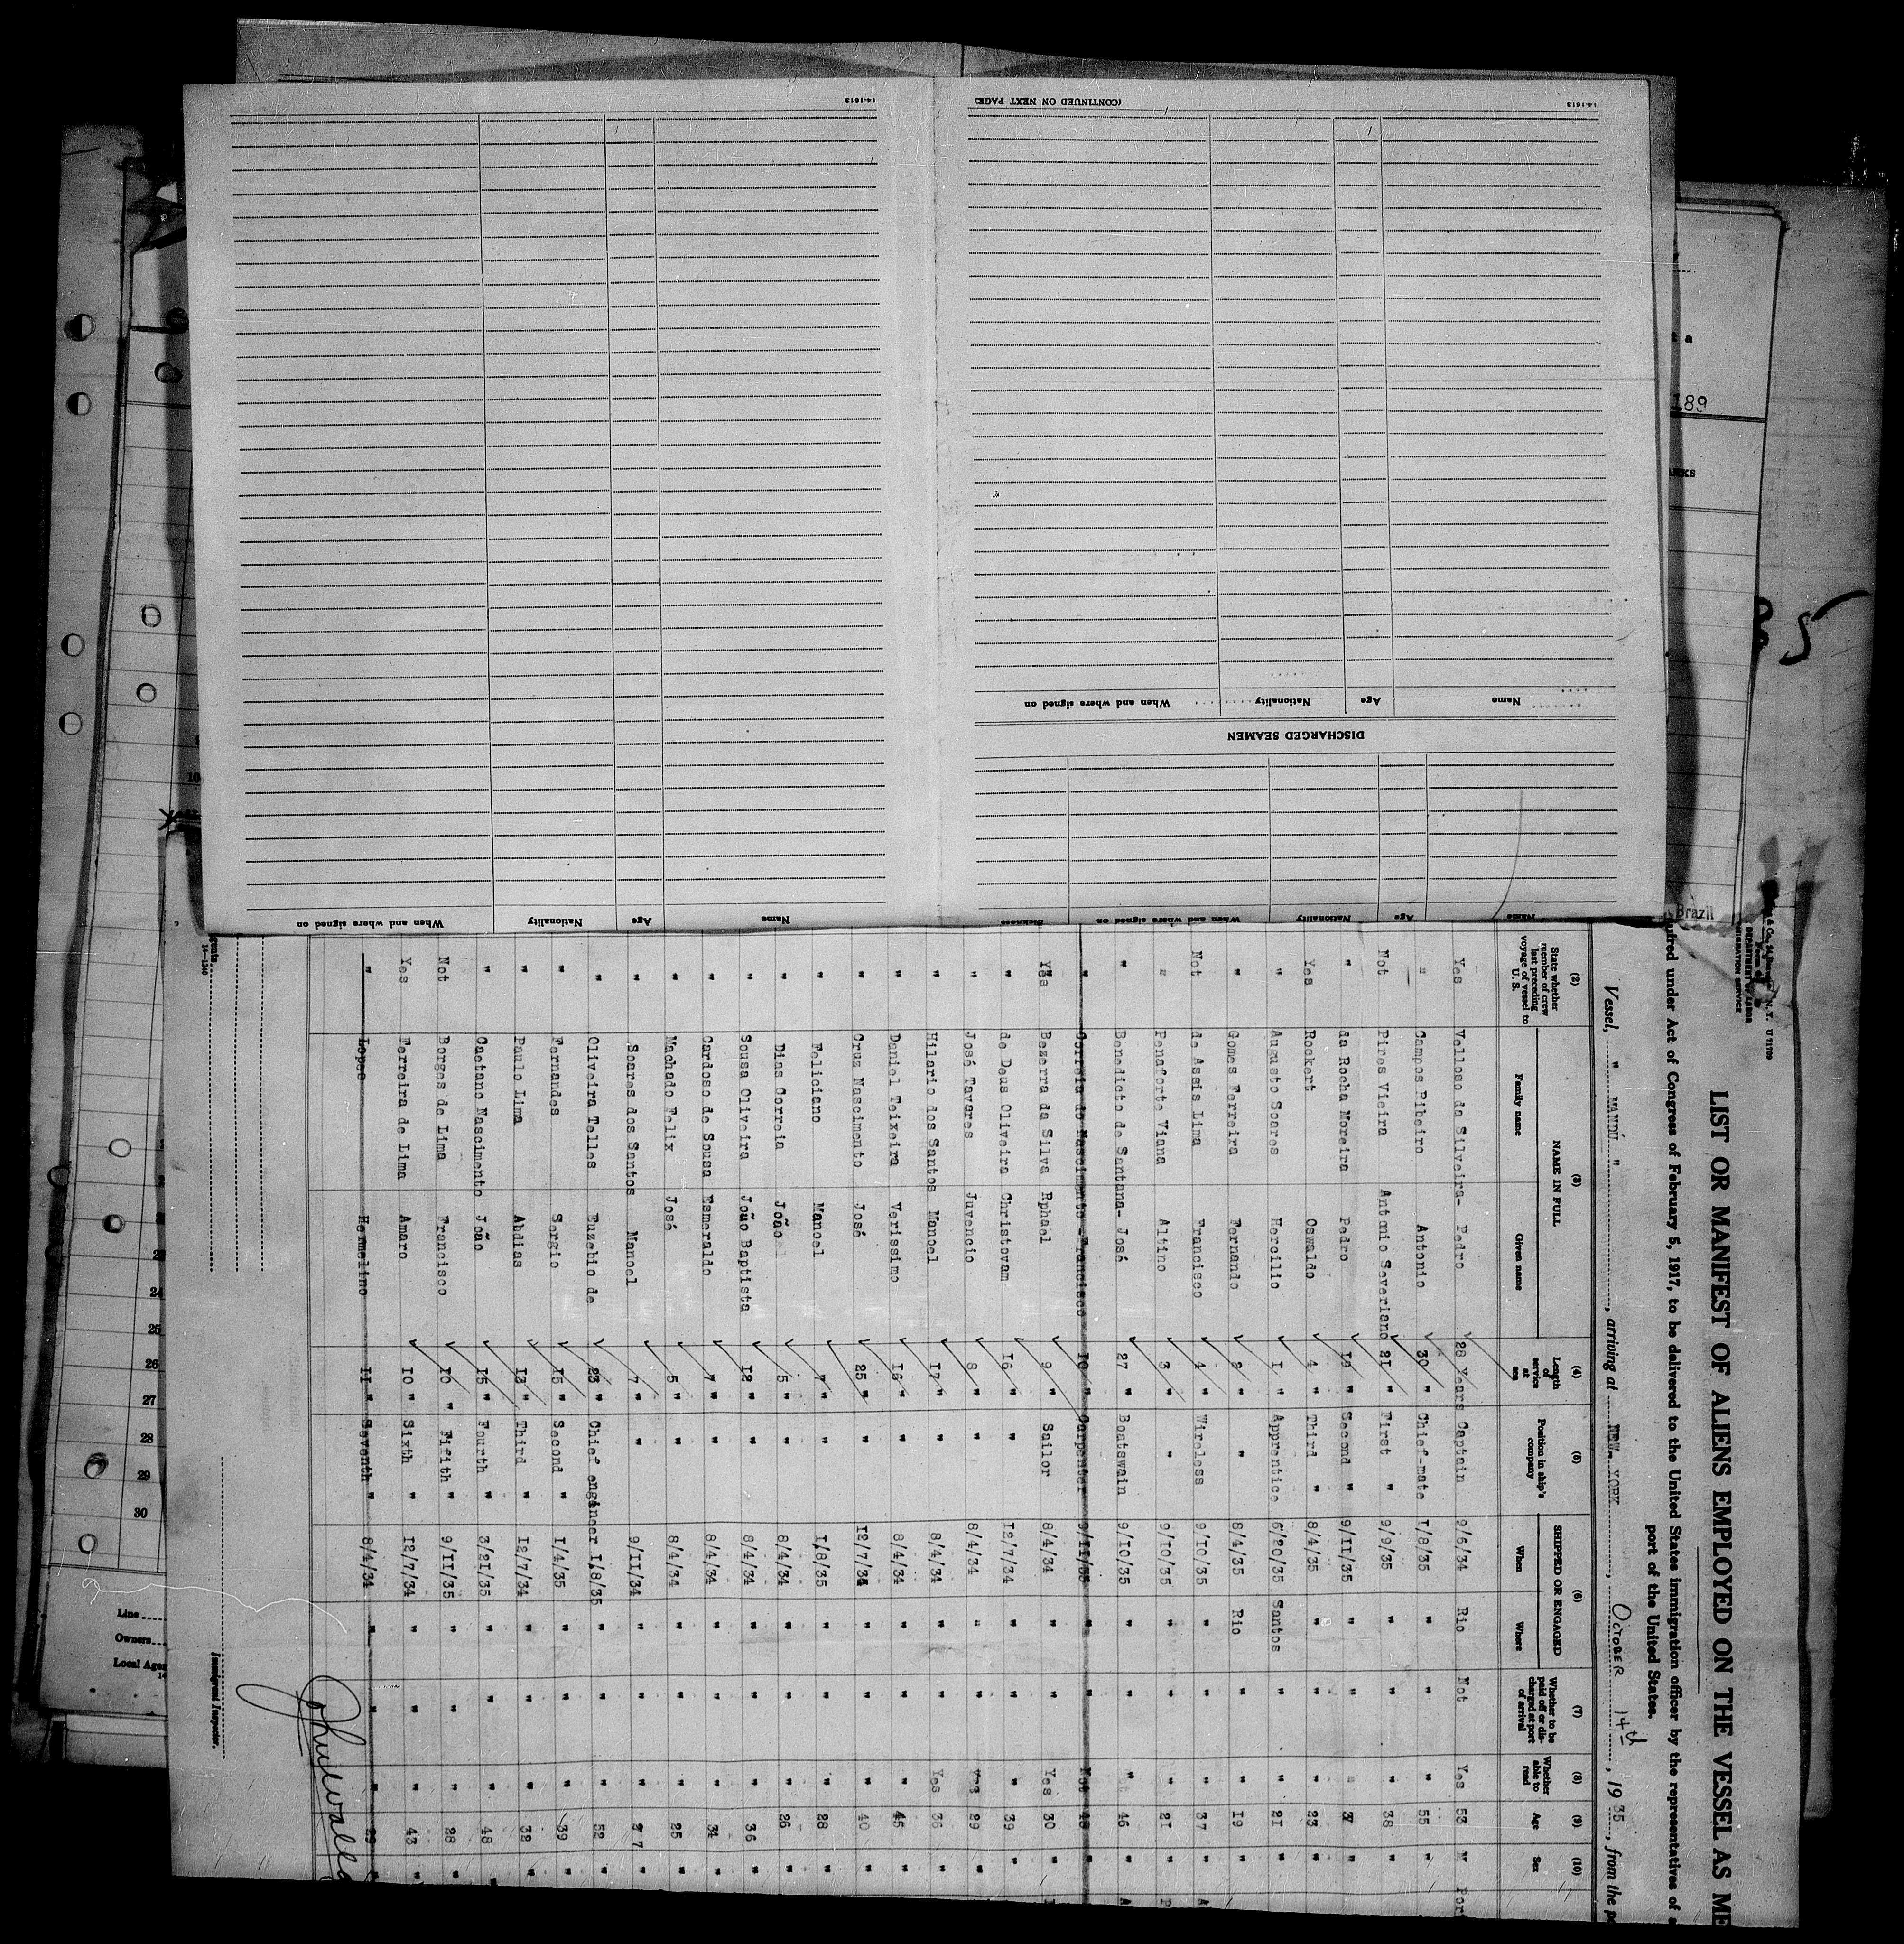 14-1613
(CONTINUED ON NEXT PAGE)
14-1613
Name Age Nationality When and where signed on
DISCHARGED SEAMEN
Name Age Nationality When and where signed on Sickness
Name Age Nationality When and where signed on
189
5
Brazil
10
24
25
26
27
28
29
30
Line
Owners
LIST OR MANIFEST OF ALIENS EMPLOYED ON THE VESSEL AS ME
under Act of Congress of February 5, 1917, to be delivered to the United States immigration officer by the representatives of
port of the United States.
Vessel, " MANDÚ. " , arriving at NEW. YORK , OCTOBER 14th , 1935 , from the
(2) (3) (4) (5) (6) (7) (8) (9) (10)
State whether member of crew last preceding voyage of vessel to U. S.
NAME IN FULL
Family name Given name
Length of service at sea
Position in ship's company
SHIPPED OR ENGAGED
When Where
Whether to be paid off or discharged at port of arrival
Whether able to read
Age
Sex
Yes Velloso da Silveira- Pedro 28 Years Captain 9/6/34 Rio Not Yes 53 M Por
" Campos Ribeiro Antonio 30 " Chief-mate 1/8/35 " " " 55 "
Not Pires Vieira Antonio Severiano 21 " First " 9/9/35 " " " 38 "
" da Rocha Moreira Pedro 19 " Second " 9/11/35 " " " 37 "
Yes Rockert Oswaldo 4 " Third " 8/4/35 " " " 23 "
" Augusto Soares Hercilio 1 " Apprentice 6/20/35 Santos " " 21 "
" Gomes Ferreira Fernando 2 " " 8/4/35 Rio " " 19 "
Not de Assis Lima Francisco 4 " Wireless 9/10/35 " " " 37 " A
" Penaforte Viana Altino 3 " " 9/10/35 " " " 21 " P
" Benedicto de Santana- José 27 " Boatswain 9/10/35 " " " 46 " A
" Correia do Nascimento -Francisco 10 " Carpenter 9/11/35 " " Not 48 "
Yes Bezerra da Silva Rphael 9 " Sailor 8/4/34 " " Yes 30 "
" de Deus Oliveira Christovam 16 " " 12/7/34 " " " 39 "
" José Tavares Juvencio 8 " " 8/4/34 " " Yes 29 "
" Hilario dos Santos Manoel 17 " " 8/4/34 " " Yes 36 "
" Daniel Teixeira Verissimo 16 " " 8/4/34 " " " 45 "
" Cruz Nascimento José 25 " " 12/7/34 " " " 40 "
" Feliciano Manoel 7 " " 1/8/35 " " " 28 "
" Dias Correia João 5 " " 8/4/34 " " " 26 "
" Sousa Oliveira João Baptista 12 " " 8/4/34 " " " 36 "
" Cardoso de Sousa Esmeraldo 7 " " 8/4/34 " " " 34 "
" Machado Felix José 5 " " 8/4/34 " " " 25 "
" Soares dos Santos Manoel 7 " " 9/11/34 " " " 37 "
" Oliveira Telles Euzebio de 23 " Chief engineer 1/8/35 " " " 52 "
" Fernandes Sergio 15 " Second " 1/4/35 " " " 39 "
" Paulo Lima Abdias 13 " Third " 12/7/34 " " " 32 "
" Caetano Nascimento João 15 " Fourth " 3/21/35 " " " 48 "
Not Borges de Lima Francisco 10 " Fifith " 9/11/35 " " " 28 "
Yes Ferreira de Lima Amaro 10 " Sixth " 12/7/34 " " " 43 "
" Lopes Hermelino 11 " Seventh " 8/4/34 " " " 29 "
14—1240
Immigrant Inspector.